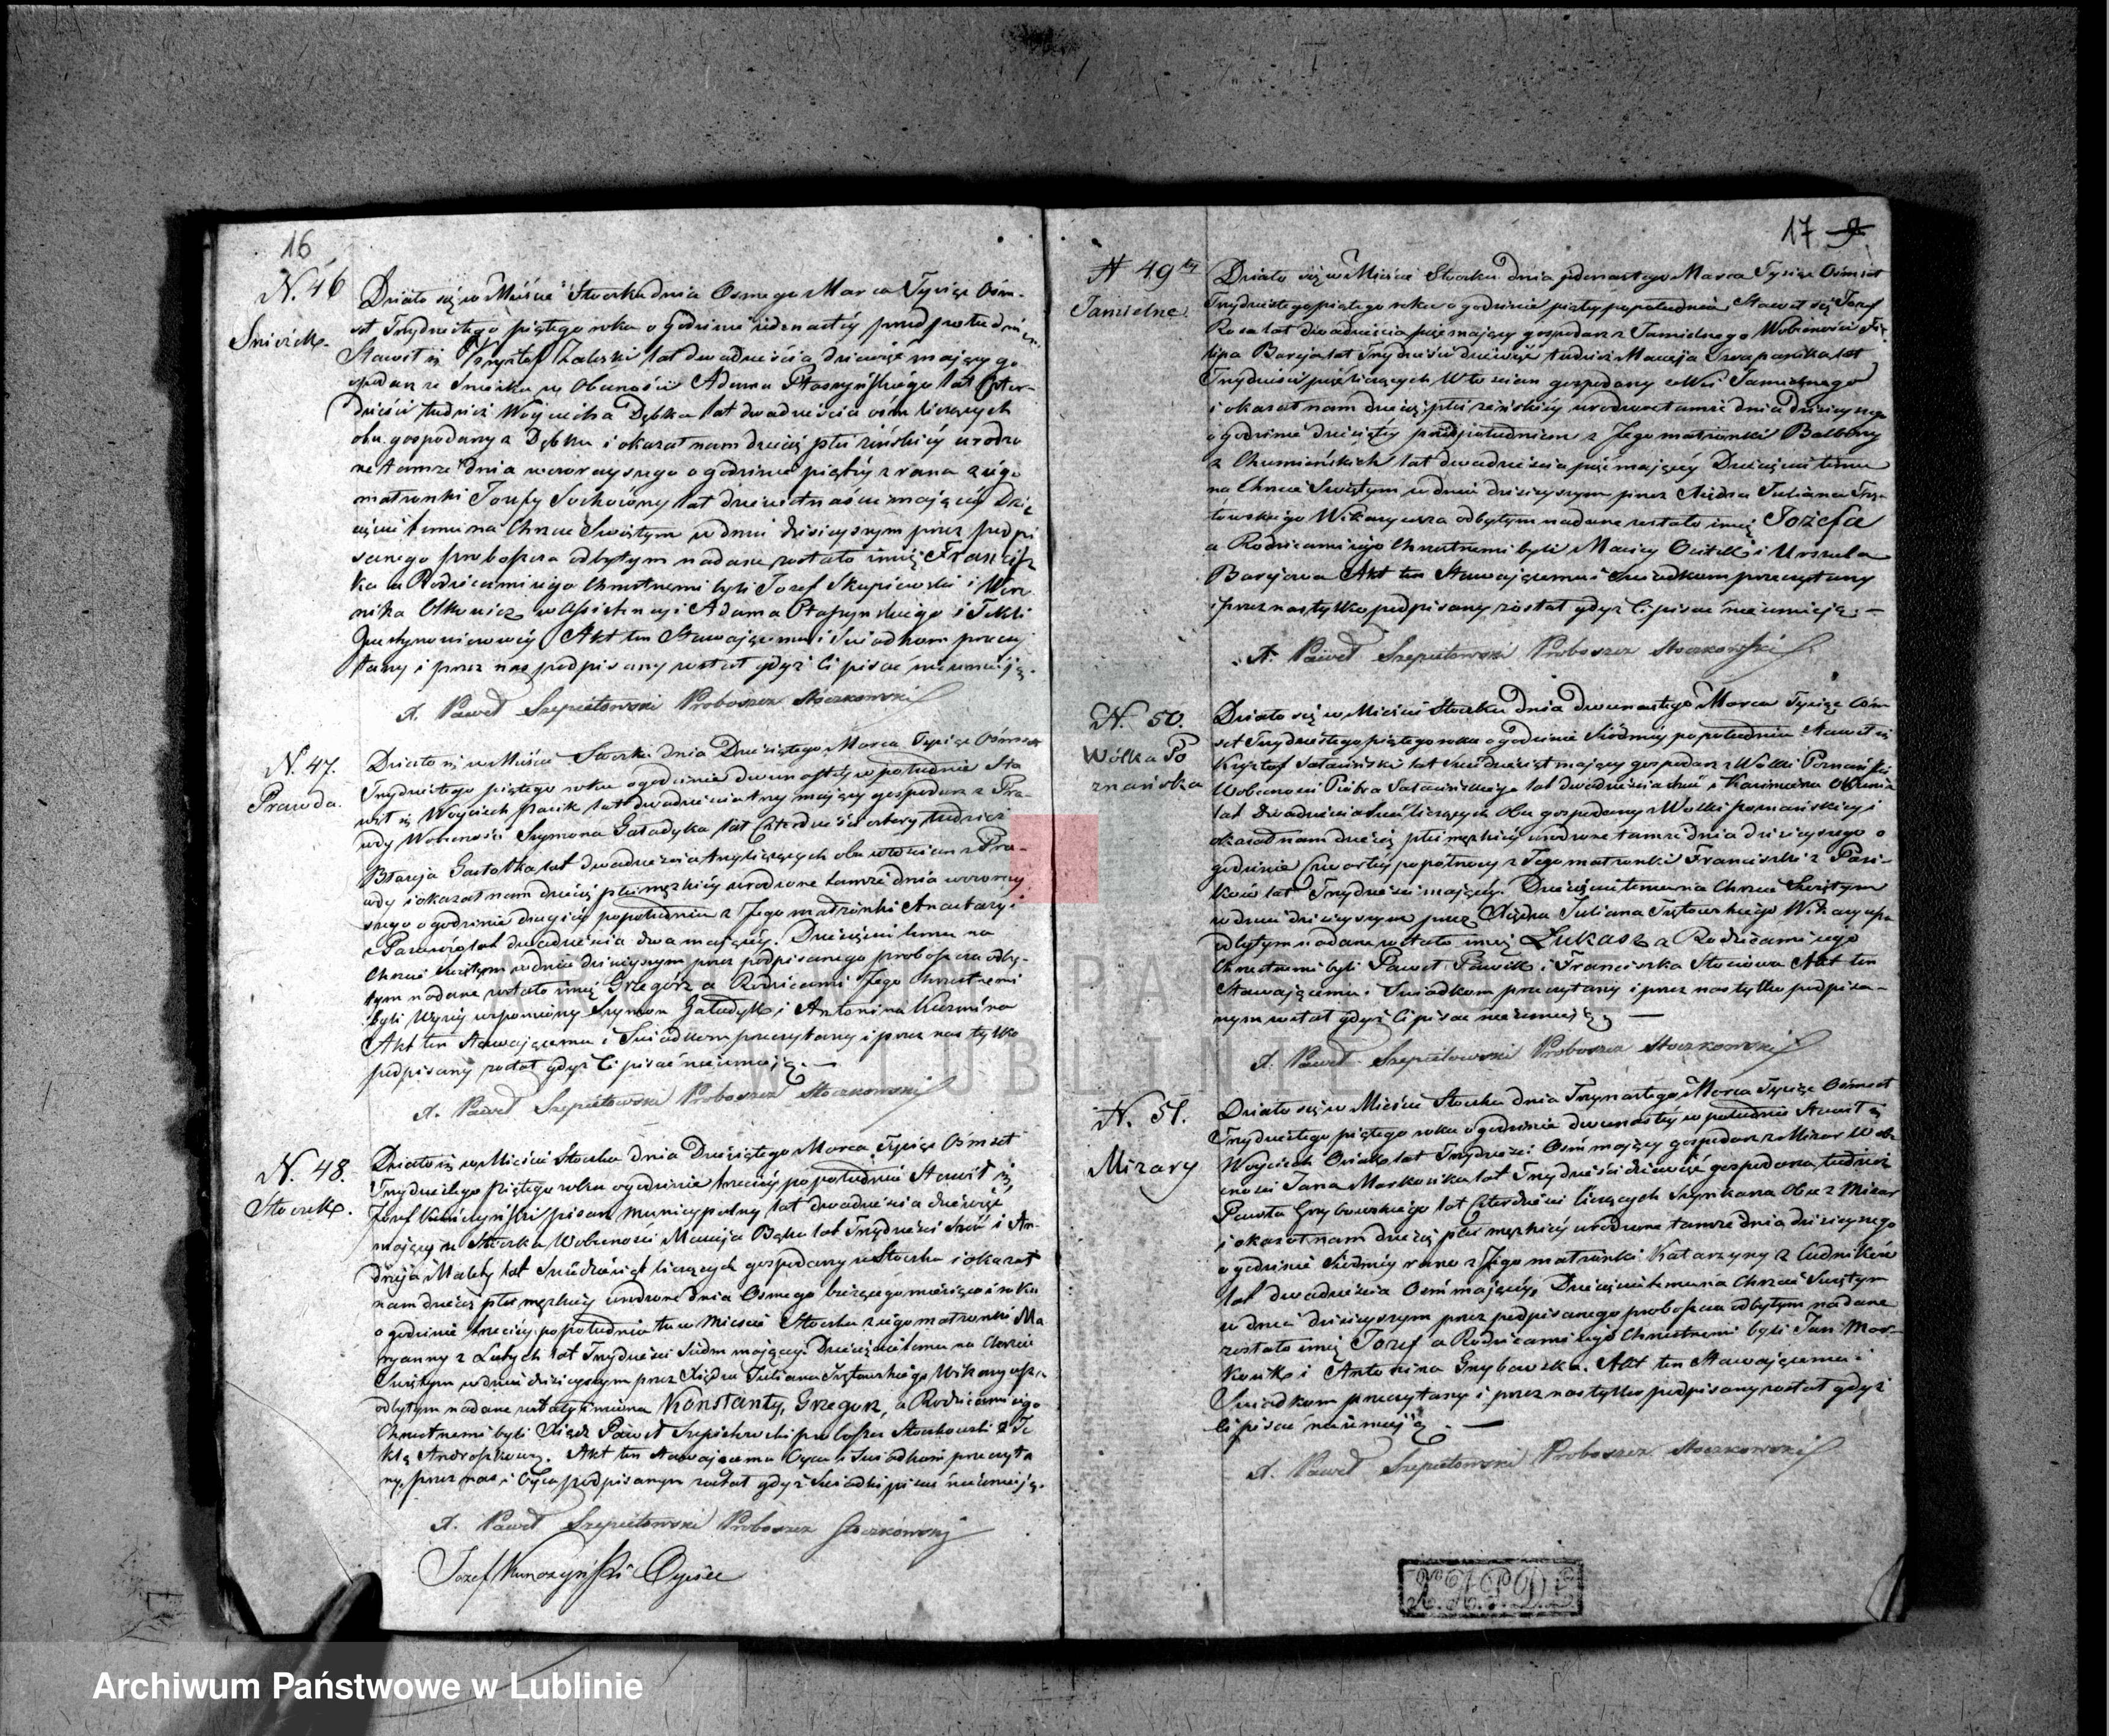 16
N. 46
Snieżek.
Działo się w Mieście Stoczku dnia Osmego Marca Tysiąc Ośm-
set Trzydziestego piątego roku o godzinie jedenastéy przed południem
Stawił się Krzysztof Zalewski lat dwadzieścia dziewięć mający go
spodarz ze Snieżek w Obecności Adama Ptaszyńskiego lat Czter-
dzieści tudzież Woyciecha Dębka lat dwadzieścia ośm liczących
obu gospodarzy z i okazał nam dziecię płci żeńskiéy urodzo
ne tamże dnia wczorayszego o godzinie piątéy z rana z iego
małżonki Jozefy lat dziewietnaście maiącéy Dzie
cięciu temu na Chrzcie Swiętym w dniu dzisieyszym przez podpi
sanego proboszcza odbytym nadane zostało imię Francisz
ka a Rodzicami iego Chrzestnemi byli Jozef Skupiewski i Wero
nika w Assistencyi Adama Ptaszyńskiego i Tekli
Akt ten Stawaiącemu i Swiadkom przeczy
tany i przez nas podpisany został gdyż Ci pisać nieumieią.
X. Paweł Szepietowski Proboszcz Stoczkowski
N. 47.
Prawda.
Działo się w Mieście Stoczku dnia Dziesiątego Marca Tysiąc Ośmset
Trzydziestego piątego roku o godzinie dwunastéy w południe Sta
wił się Woyciech lat dwadzieścia trzy maiący gospodarz z Pra-
wdy Wobecności Szymona Gaładyka lat Czterdzieści cztery tudzież
Błażeja lat dwadzieścia trzy liczących obu włościan z Pra-
wdy i okazał nam dziecię płci męzkiéy urodzone tamże dnia wczoray
szego o godzinie drugiéy popołudniu z Jego małżonki Anastazyi
lat dwadzieścia dwa maiącéy. Dziecięciu temu na
Chrzcie Swiętym w dniu dzisieyszym przez podpisanego proboszcza odby-
tym nadane zostało imię Grzegórz a Rodzicami Jego Chrzestnemi
byli Wyżéy wspomniony Szymon Gaładyk i Antonina Kuzmina
Akt ten Stawaiącemu i Swiadkom przeczytany i przez nas tylko
podpisany został gdyż Ci pisać nieumieią. —
X. Paweł Szepietowski Proboszcz Stoczkowski
N. 48.
Stoczek.
Działo się w Mieście Stoczku dnia Dziesiątego Marca Tysiąc Ośmset
Trzydziestego piątego roku o godzinie trzeciéy popołudniu Stawił się
Jozef pisarz municypalny lat dwadzieścia dziewięć
maiący w Stoczku Wobecności Macieja Bąka lat Trzydzieści i An-
drzeja Małéy lat liczących gospodarzy w Stoczku i okazał
nam dziecię płci męzkiéy urodzone dnia Osmego bieżącego miesiąca i roku
o godzinie trzeciéy popołudniu tu w Mieście Stoczku z iego małżonki Ma
ryanny z Lutych lat Trzydzieści Siedm maiącéy. Dziecięciu temu na Chrzcie
Swiętym w dniu dzisieyszym przez Xiędza Juliana Wikaryusza
odbytym nadane zostały imiona Konstanty, Grzegorz, a Rodzicami iego
Chrzestnemi byli Xiądz Paweł Szepietowski proboszcz Stoczkowski i Te
kla Akt ten Stawaiącemu Oycu i Swiadkom przeczyta
ny, przez nas i Oyca podpisanym został gdyż Swiadki pisać nieumieią.
X. Paweł Szepietowski Proboszcz Stoczkowski
Jozef Oyciec
17 9
N 49ty
Jamielne.
Działo się w Mieście Stoczku dnia jedenastego Marca Tysiąc Ośmset
Trzydziestego piątego roku o godzinie piątéy popołudniu Stawił się Jozef
Koza lat dwadzieścia pięć maiący gospodarz z Jamielnego Wobecności Fi-
lipa lat Trzydzieści dziewięć tudzież Macieja lat
Trzydzieści pięć liczących Włościan gospodarzy z Wsi Jamielnego
i okazał nam dziecię płci żeńskiéy urodzone tamże dnia dzisieyszego
o godzinie dziesiątéy przed południem z Jego małżonki Balbiny
z Chumieńskich lat dwadzieścia pięć maiącéy Dziecięciu temu
na Chrzcie Swiętym w dniu dzisieyszym przez Xiędza Juliana
Wikaryusza odbytym nadane zostało imię Jozefa
a Rodzicami iego Chrzestnemi byli Maciey i Urszula
Akt ten Stawaiącemu i Swiadkom przeczytany
i przez nas tylko podpisany został gdyż Ci pisać nieumieią. —
X. Paweł Szepietowski Proboszcz Stoczkowski
N. 50.
Wólka Po
znańska
Działo się w Mieście Stoczku dnia dwunastego Marca Tysiąc Ośm
set Trzydziestego piątego roku o godzinie Siódméy popołudniu Stawił się
Krysztof lat maiący gospodarz z Wólki Poznańskiéy
Wobecności Piotra lat dwadzieścia i Kazimierza
lat Dwadzieścia liczących Obu gospodarzy z Wólki poznańskiéy i
okazał nam dziecię płci męzkiéy urodzone tamże dnia dzisieyszego o
godzinie Czwartéy popółnocy z Jego małżonki Franciszki z
lat Trzydzieści maiącéy. Dziecięciu temu na Chrzcie Swiętym
w dniu dzisieyszym przez Xiędza Juliana Wikaryusza
odbytym nadane zostało imię Łukasz a Rodzicami iego
Chrzestnemi byli Paweł Pawlik i Franciszka Akt ten
Stawaiącemu i Swiadkom przeczytany i przez nas tylko podpisa-
nym został gdyż Ci pisać nieumieią —
X. Paweł Szepietowski Proboszcz Stoczkowski
N. 51.
Mizary
Działo się w Mieście Stoczku dnia Trzynastego Marca Tysiąc Ośmset
Trzydziestego piątego roku o godzinie dwunastéy w południe Stawił się
Woyciech Osiak lat Trzydzieści Ośm maiący gospodarz z Mizar Wobe
cności Jana lat Trzydzieści dziewięć gospodarza, tudzież
Pawła Grzybowskiego lat Czterdzieści liczących Szynkarza Obu z Mizar
i okazał nam dziecię płci męzkiéy urodzone tamże dnia dzisieyszego
o godzinie Siódméy rano z Jego małżonki Katarzyny z Ludwików
lat dwadzieścia Ośm maiącéy, Dziecięciu temu na Chrzcie Swiętym
w dniu dzisieyszym przez podpisanego proboszcza odbytym nadane
zostało imię Jozef a Rodzicami iego Chrzestnemi byli Jan
i Antonina Grzybowska. Akt ten Stawaiącemu i
Swiadkom przeczytany i przez nas tylko podpisany został gdyż
Ci pisać nieumieią. —
X. Paweł Szepietowski Proboszcz Stoczkowski
W LUBLINIE
Archiwum Państwowe w Lublinie